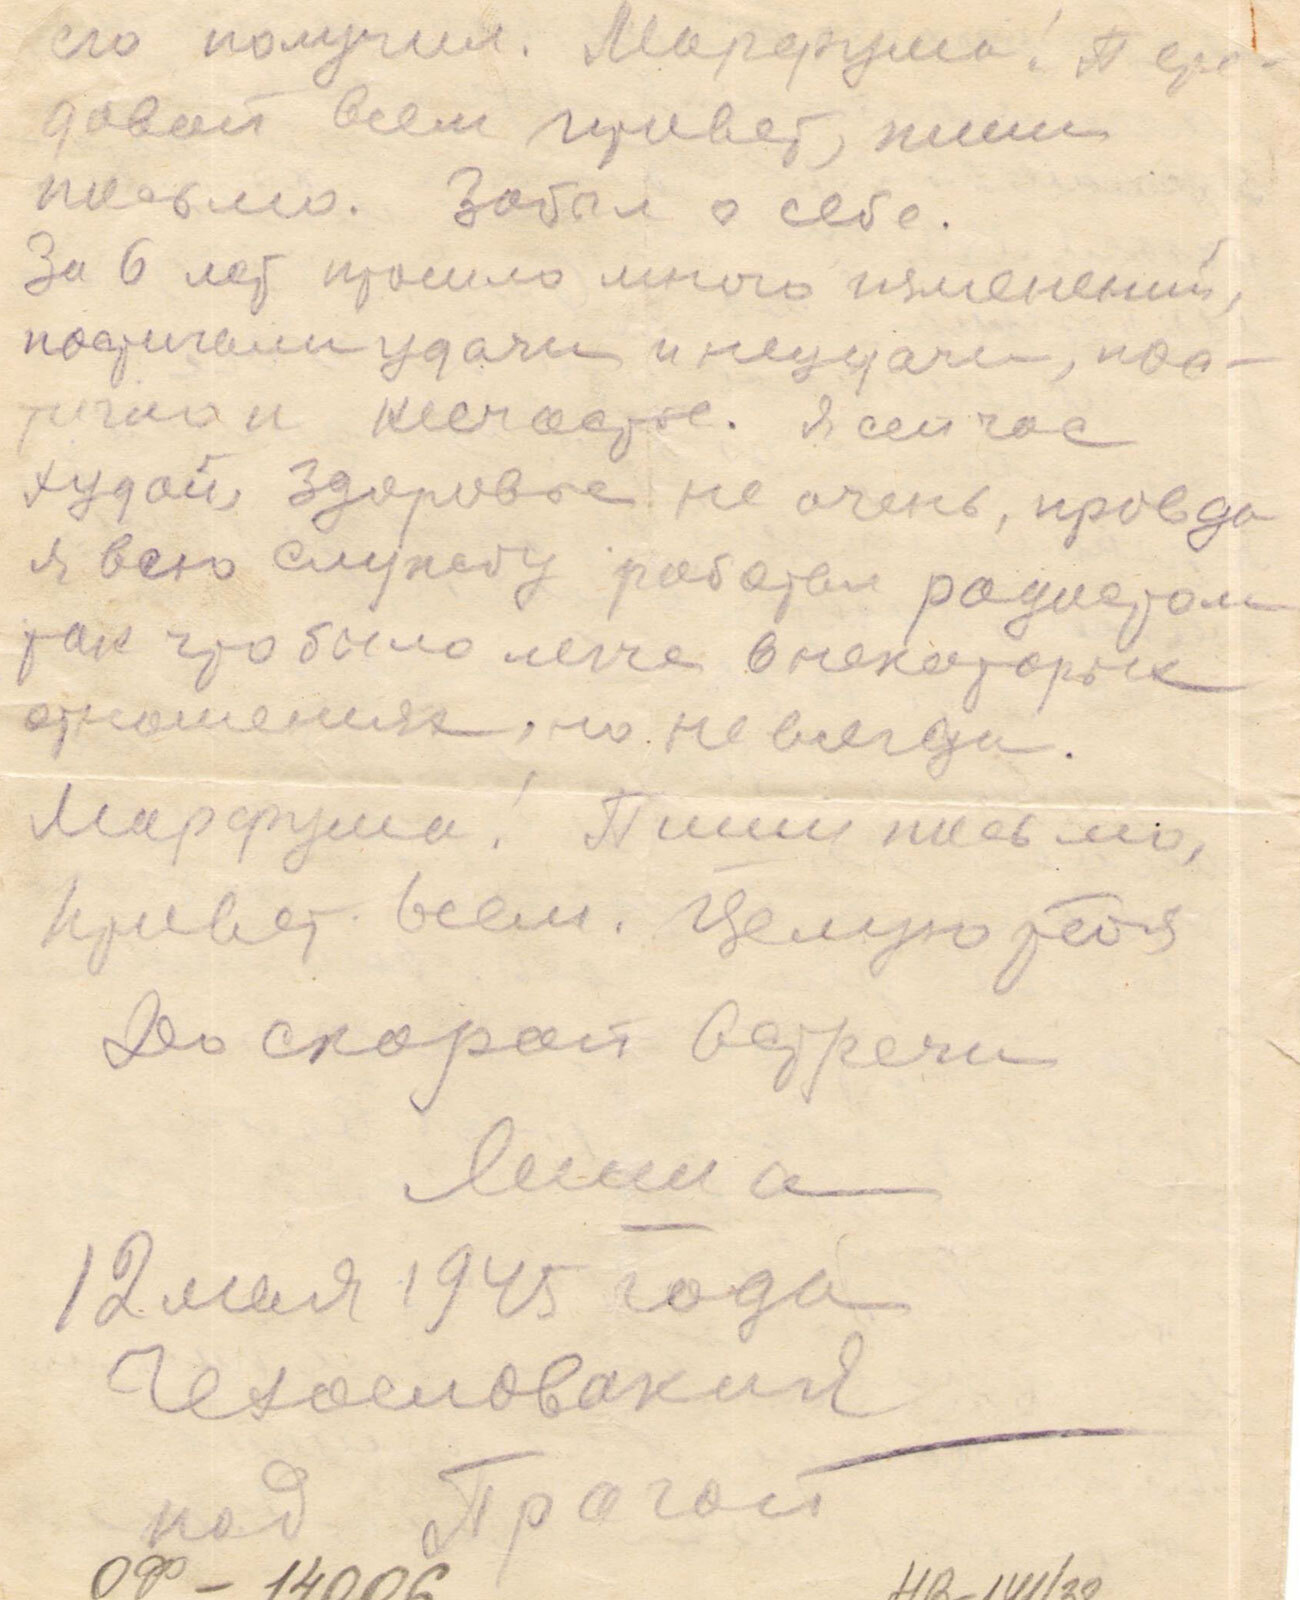 его получил. Марфуша! Пере-
давай всем привет, пиши
письмо. Забыл о себе.
За 6 лет прошло много изменений,
постигали удачи и неудачи, пос-
тигло и несчастье. Я сейчас
худой, здоровье не очень, правда
я всю службу работал радистом
так что было легче в некоторых
отношениях, но не всегда.
Марфуша! Пиши письмо,
привет всем. Целую тебя
До скорой встречи
12 мая 1945 года
Чехословакия
под Прагой
ОФ-14006